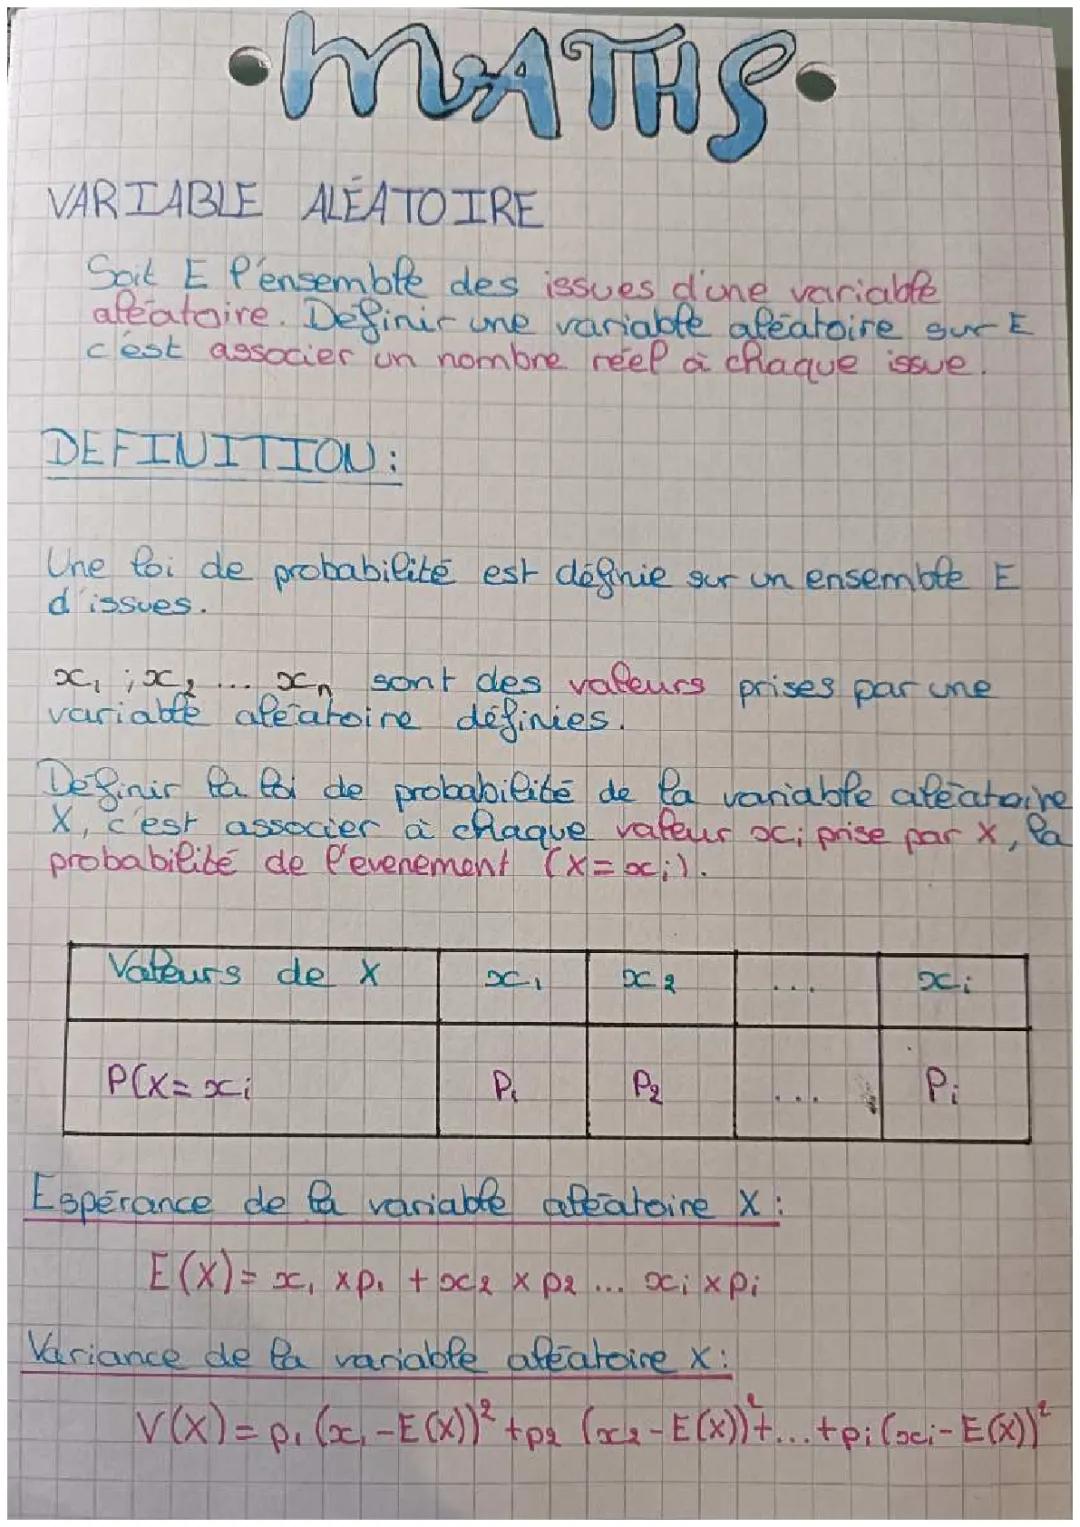 MATHS
VARIABLE ALÉATOIRE
Soit E l'ensemble des issues d'une variable
aléatoire. Définir une variable aléatoire sur E
c'est associer un nombre réel à chaque issue.
DEFINITION :
Une loi de probabilité est définie sur un ensemble E
d'issues.
x₁ ; x₂ ... xₙ sont des valeurs prises par une
variable aléatoire définies.
Définir la loi de probabilité de la variable aléatoire
X, c'est associer à chaque valeur xᵢ prise par X, la
probabilité de l'evenement (X = xᵢ).
Valeurs de X x₁ x₂ ... xᵢ
P(X = xᵢ P₁ P₂ ... Pᵢ
Espérance de la variable aléatoire X :
E(X) = x₁ × p₁ + x₂ × p₂ ... xᵢ × pᵢ
Variance de la variable aléatoire X :
V(X) = p₁ (x₁ - E(X))² + p₂ (x₂ - E(X))² + ... + pᵢ (xᵢ - E(X))²